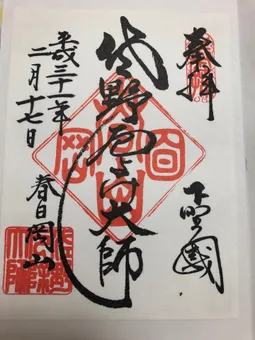 奉拝
下野國
佐野厄よけ大師
平成三十一年
二月十七日
春日岡山